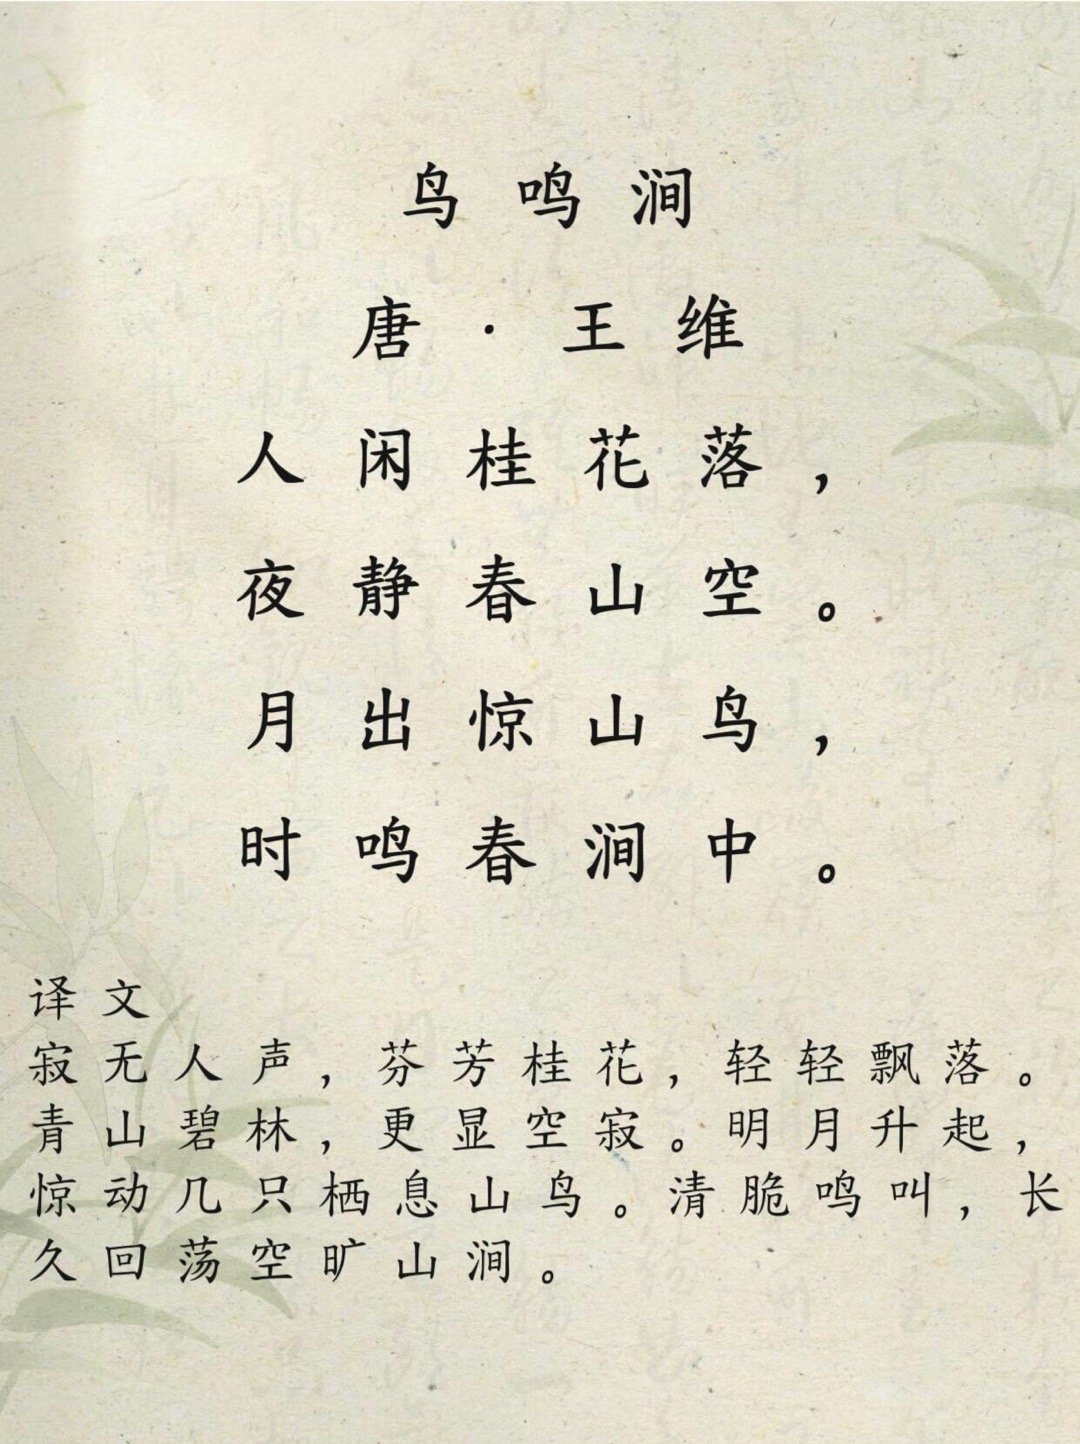 鸟鸣涧
唐·王维
人闲桂花落，
夜静春山空。
月出惊山鸟，
时鸣春涧中。
译文
寂无人声，芬芳桂花，轻轻飘落。
青山碧林，更显空寂。明月升起，
惊动几只栖息山鸟。清脆鸣叫，长
久回荡空旷山涧。